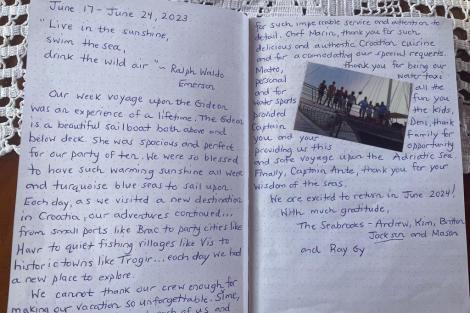 June 17 - June 24, 2023
"Live in the sunshine,
swim the sea,
drink the wild air" ~ Ralph Waldo
Emerson
Our week voyage upon the Gideon
was an experience of a lifetime. The Gideon
is a beautiful sailboat both above and
below deck. She was spacious and perfect
for our party of ten. We were so blessed
to have such warming sunshine all week
and turquoise blue seas to sail upon.
Each day, as we visited a new destination
in Croatia, our adventures continued...
from small ports like Brac to party cities like
Havr to quiet fishing villages like Vis to
historic towns like Trogir... each day we had
a new place to explore.
We cannot thank our crew enough for
making our vacation so unforgettable. Šime,
each of us and
for such impeccable service and attention to
detail. Chef Marin, thank you for such
delicious and authentic Croatian cuisine
and for accomodating our special requests.
Mateo, thank you for being our
personal water taxi
and for all the
water sports fun you
provided the kids,
Captain Deni, thank
you and your family for
providing us this opportunity
and safe voyage upon the Adriatic Sea.
Finally, Captain, Ante, thank you for your
wisdom of the seas.
We are excited to return in June 2024!
With much gratitude,
The Seabrooks - Andrew, Kim, Britton
Jackson and Mason
and Ray Gy